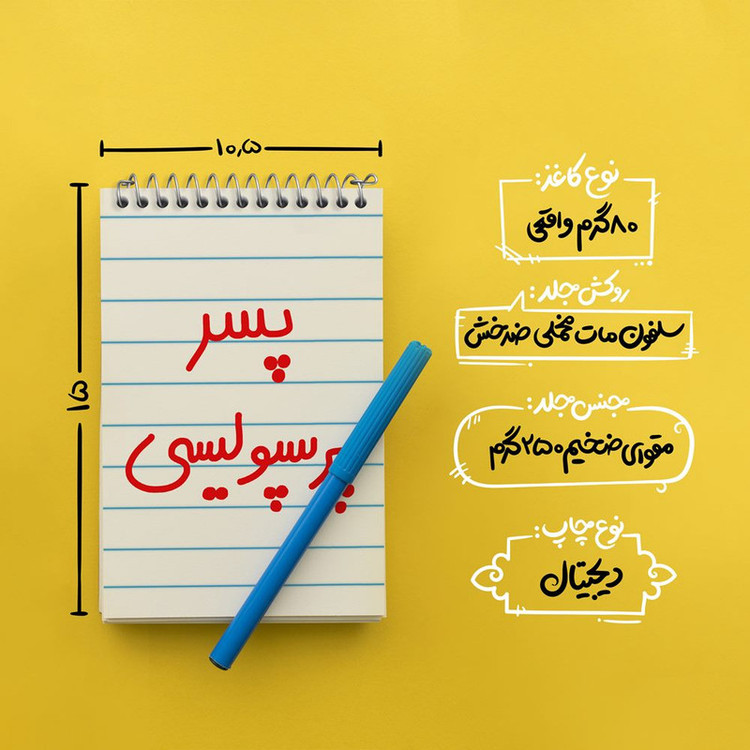 ۱۰,۵
۱۵
پسر
پرسپولیسی
نوع کاغذ:
۸۰ گرم واقعی
روکش جلد:
سلفون مات مخملی ضدخش
جنس جلد:
مقوای ضخیم ۲۵۰ گرم
نوع چاپ:
دیجیتال